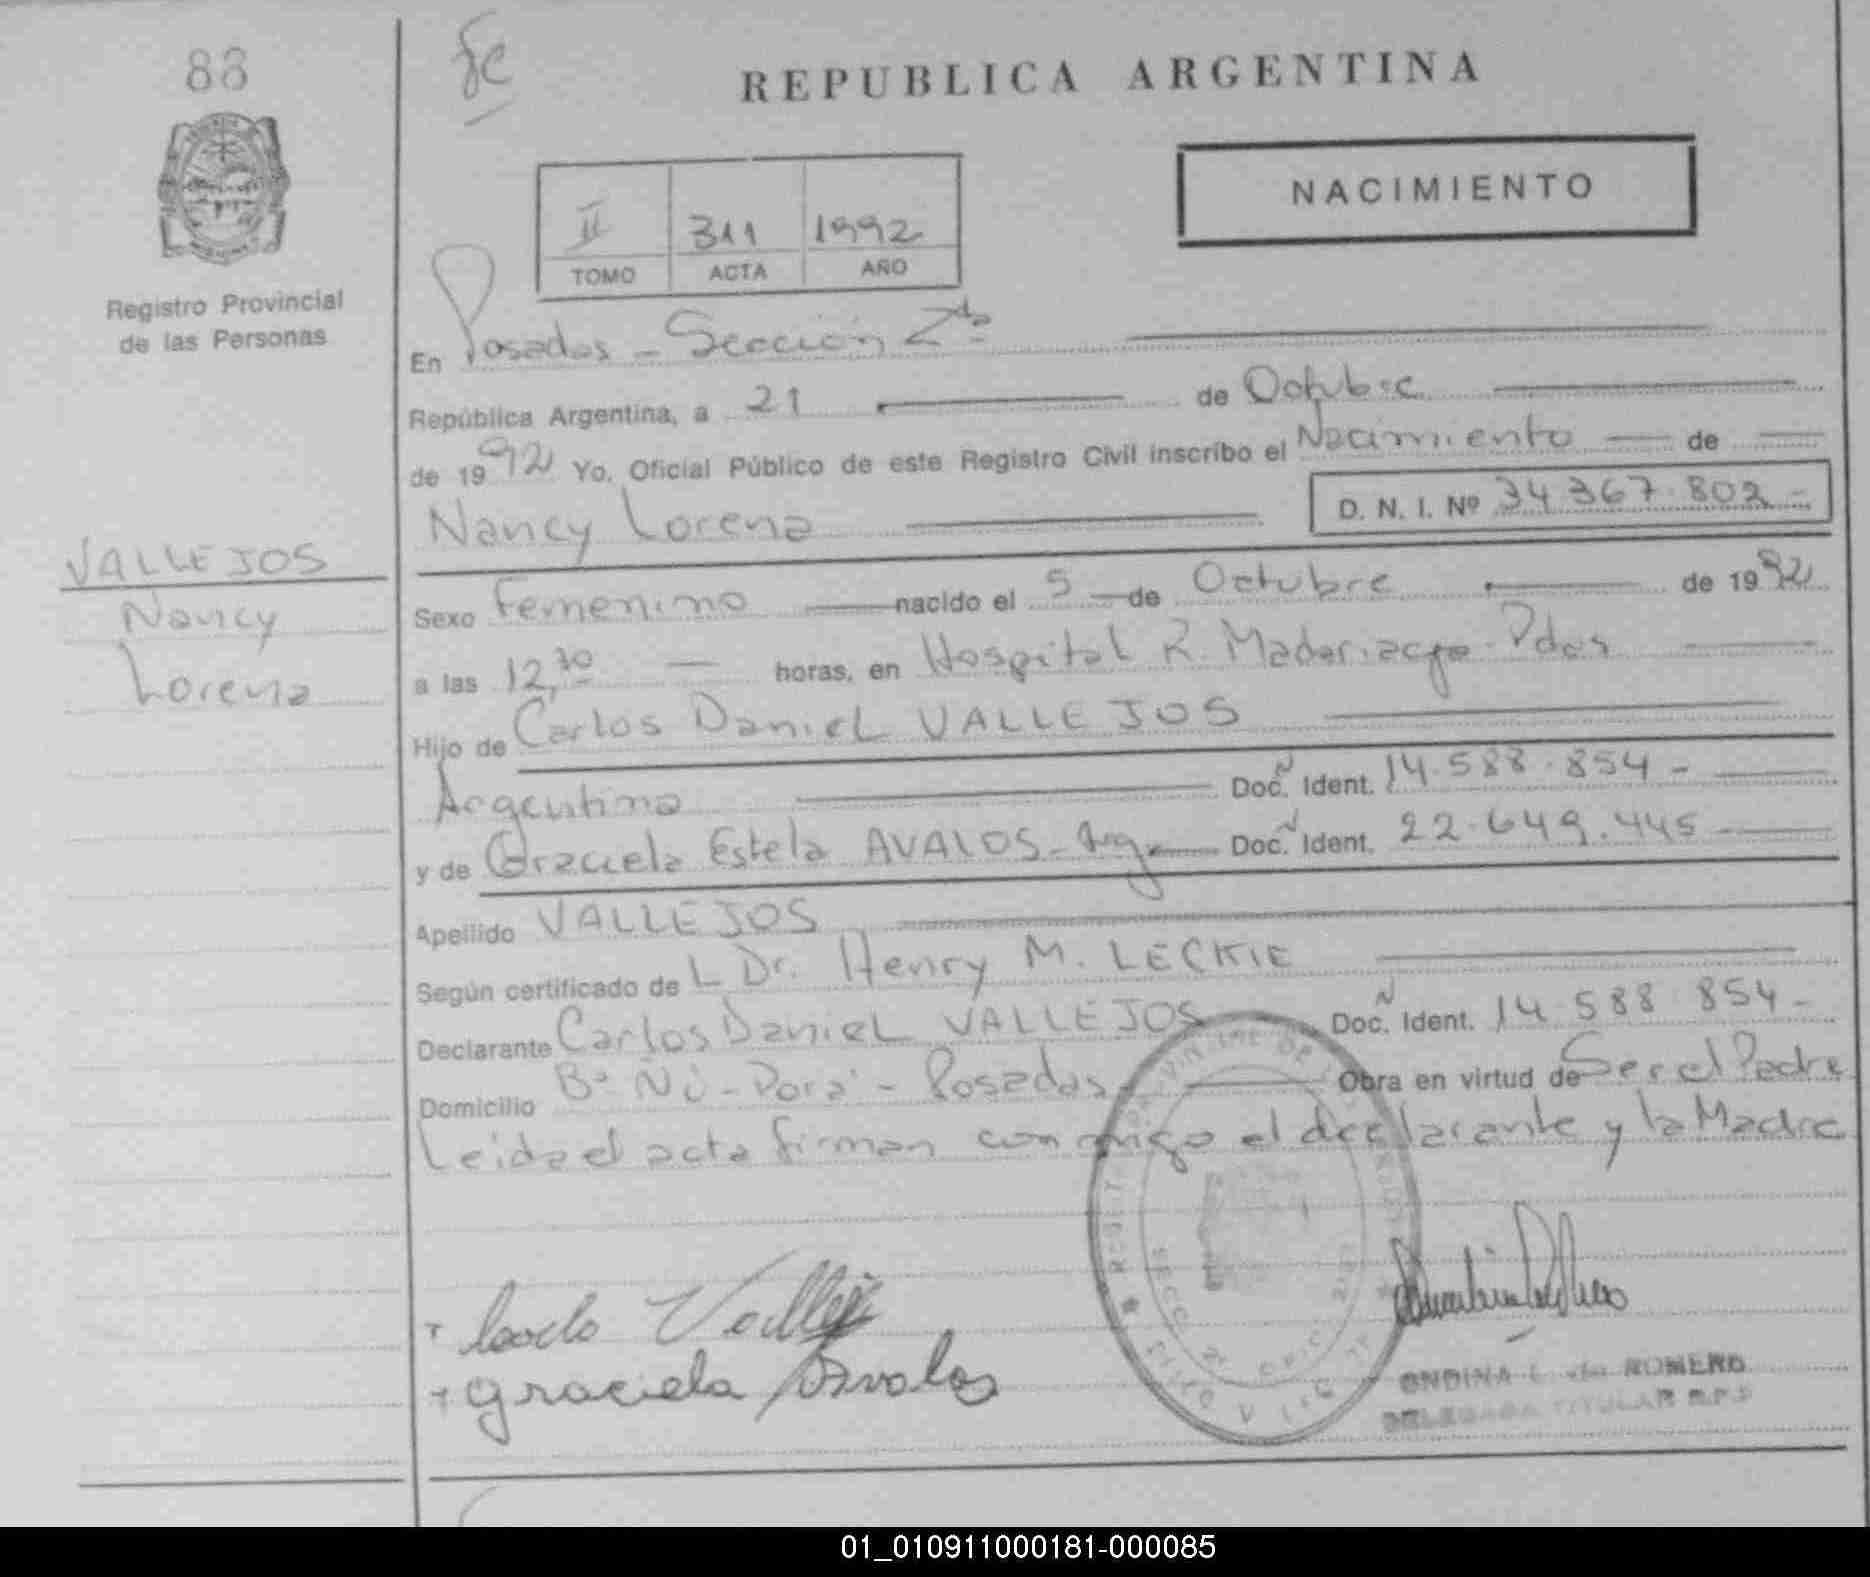 88
fc
REPUBLICA ARGENTINA
NACIMIENTO
II 311 1992
TOMO ACTA AÑO
Registro Provincial
de las Personas
En Posadas - Sección 2da
República Argentina, a 21 de Octubre
de 1992 Yo, Oficial Público de este Registro Civil inscribo el Nacimiento de
Nancy Lorena D. N. I. Nº 34.367.802-
VALLEJOS
Nancy
Lorena
Sexo Femenino nacido el 5 de Octubre de 1992
a las 12,30 horas, en Hospital R. Madariaga-Pdas
Hijo de Carlos Daniel VALLEJOS
Argentino Doc. Ident. 14.588.854-
y de Graciela Estela AVALOS-Arg. Doc. Ident. 22.649.445-
Apellido VALLEJOS
Según certificado de L Dr. Henry M. LECKIE
Declarante Carlos Daniel VALLEJOS Doc. Ident. 14 588 854-
Domicilio Bº Ñu-Porá - Posadas- Obra en virtud de Ser el Padre
Leida el acta firman conmigo el declarante y la Madre
Vallejos
Graciela Avalos
ONDINA ROMERO
DELEGADA TITULAR R.P.P
01_010911000181-000085